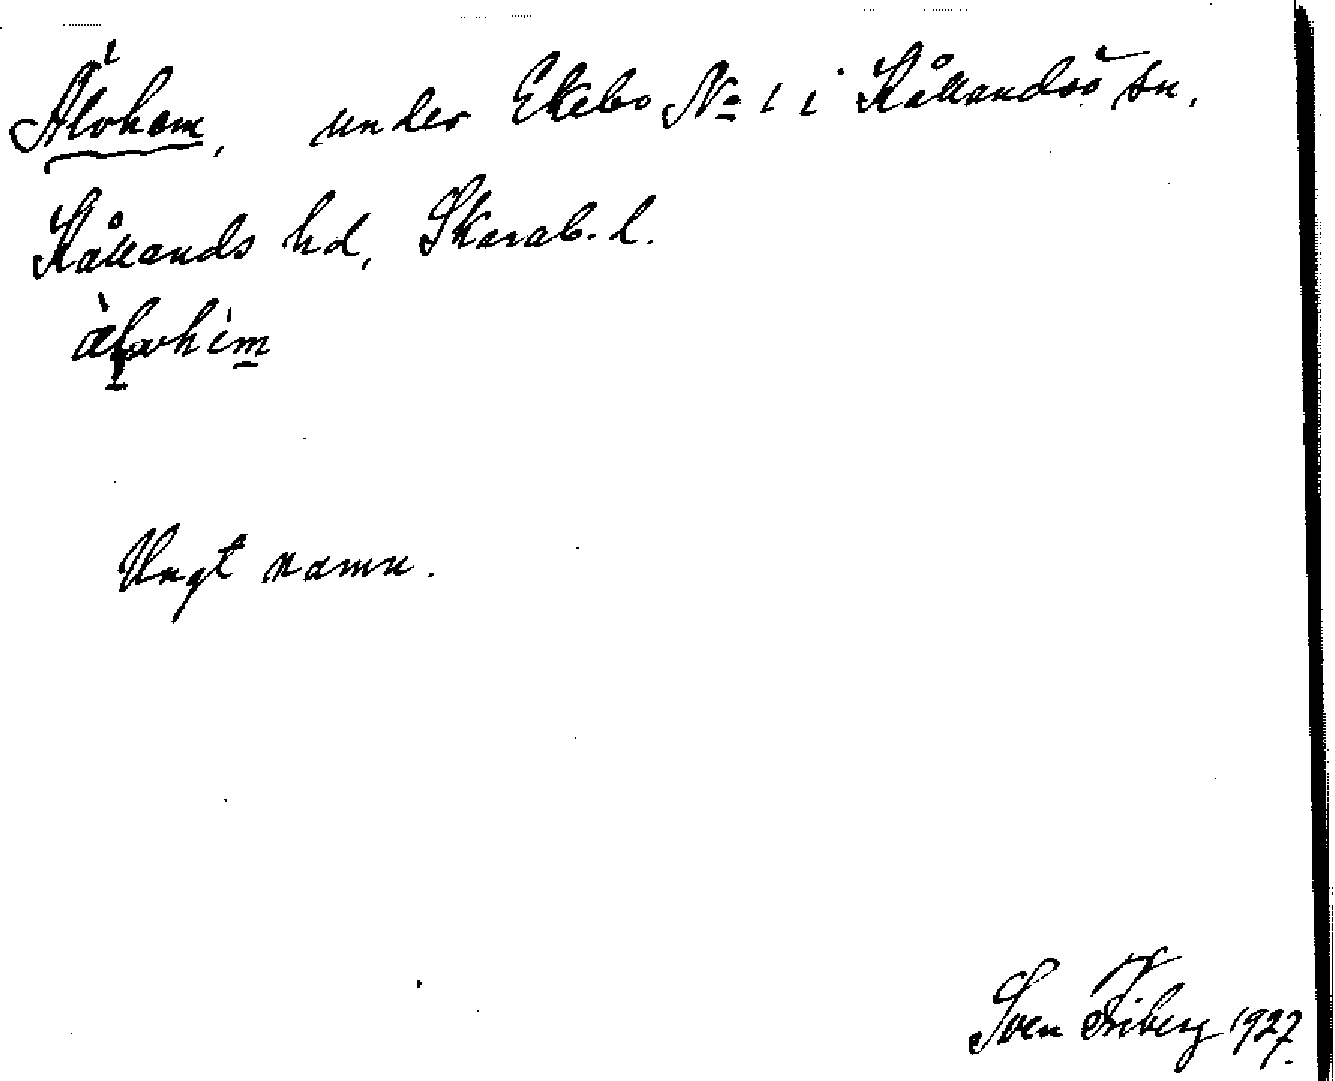 Älvhem, under Ekebo No 1 i Kållandsö sn.
Kållands hd, Skarab. l.
Ungt namn.
Sven Friberg 1927.